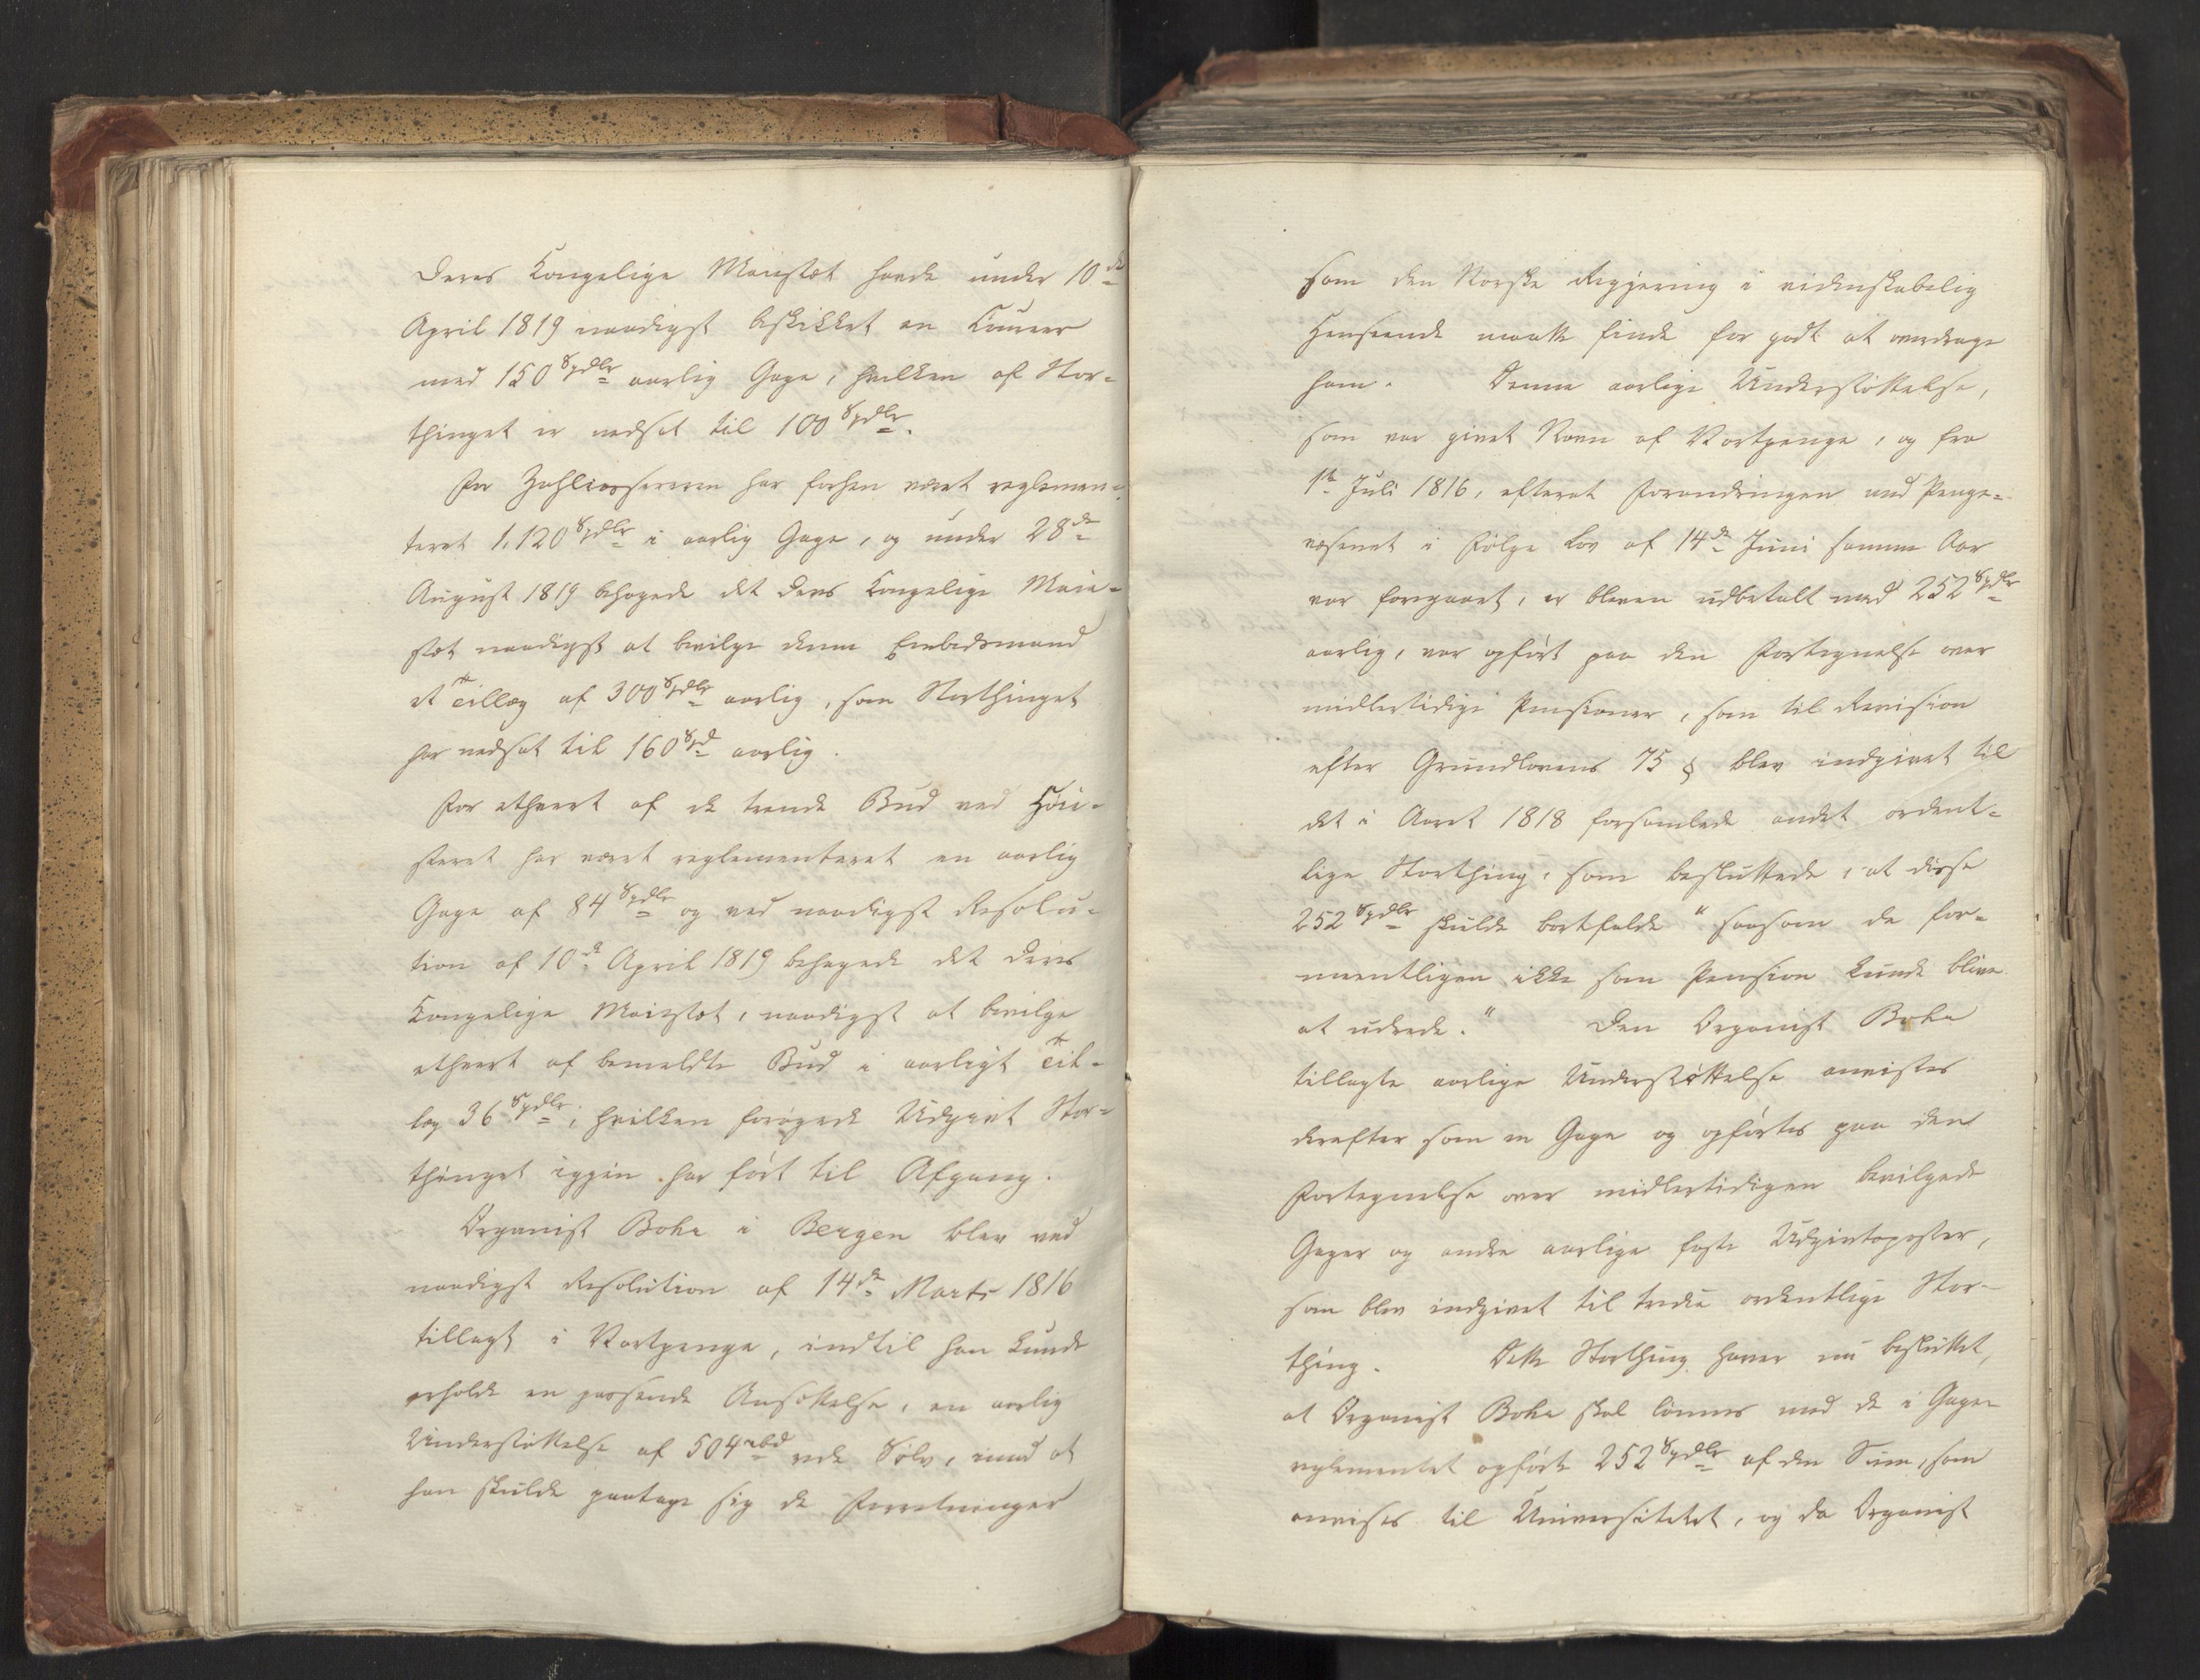 Deres Kongelige Maiestæt havde under 10de
April 1819 naadigst beskikket en Kammer
med 150 Spdlr aarlig Gage, hvilken af Stor-
thinget er nedsat til 100 Spdlr.
For Zahlcassereren har forhen været reglemen-
teret 1,120 Spdlr i aarlig Gage, og under 28de
August 1819 behagede det Deres Kongelige Maie-
stæt naadigst at bevilge denne Embedsmand
et Tillæg af 300 Spdlr aarlig, som Storthinget
har nedsat til 160 Spd aarlig.
For ethvert af de trende Bud ved Høie-
steret har været reglementeret en aarlig
Gage af 84 Spdlr og ved naadigst Resolu-
tion af 10de April 1819 behagede det Deres
Kongelige Maiestæt, naadigst at bevilge
ethvert af bemeldte Bud i aarligt Til-
læg 36 Spdlr, hvilken forøgede Udgivt Stor-
thinget igjen har ført til Afgang.
Organist Bohr i Bergen blev ved
naadigst Resolution af 14de Marts 1816
tillagt i Vartpenge, indtil han kunde
erholde en passende Ansættelse, en aarlig
Understøttelse af 504 rbd rede Sølv, imod at
han skulde paatage sig de Forretninger
som den Norske Regjering i videnskabelig
Henseende maatte finde for godt at overdrage
ham. Denne aarlige Understøttelse,
som var givet Navn af Vartpenge, og fra
1te Juli 1816, efterat Forandringen med Penge-
væsenet i Følge Lov af 14de Juni samme Aar
var foregaaet, er bleven udbetalt med 252 Spdlr
aarlig, var opført paa den Fortegnelse over
midlertidige Pensioner, som til Revision
efter Grundlovens 75 § blev indgivet til
det i Aaret 1818 forsamlede andet ordent-
lige Storthing, som besluttede, at disse
252 Spdlr skulde bortfalde "saasom de for-
meentligen ikke som Pension kunde blive
at udrede." Den Organist Bohr
tillagte aarlige Understøttelse anvistes
derefter som en Gage og opførtes paa den
Fortegnelse over midlertidigen bevilgede
Gager og andre aarlige faste Udgivtsposter,
som blev indgivet til tredie ordentlige Stor-
thing. Dette Storthing haver nu besluttet,
at Organist Bohr skal lønnes med de i Gage-
reglementet opførte 252 Spdlr af den Sum, som
anvises til Universitetet, og da Organist